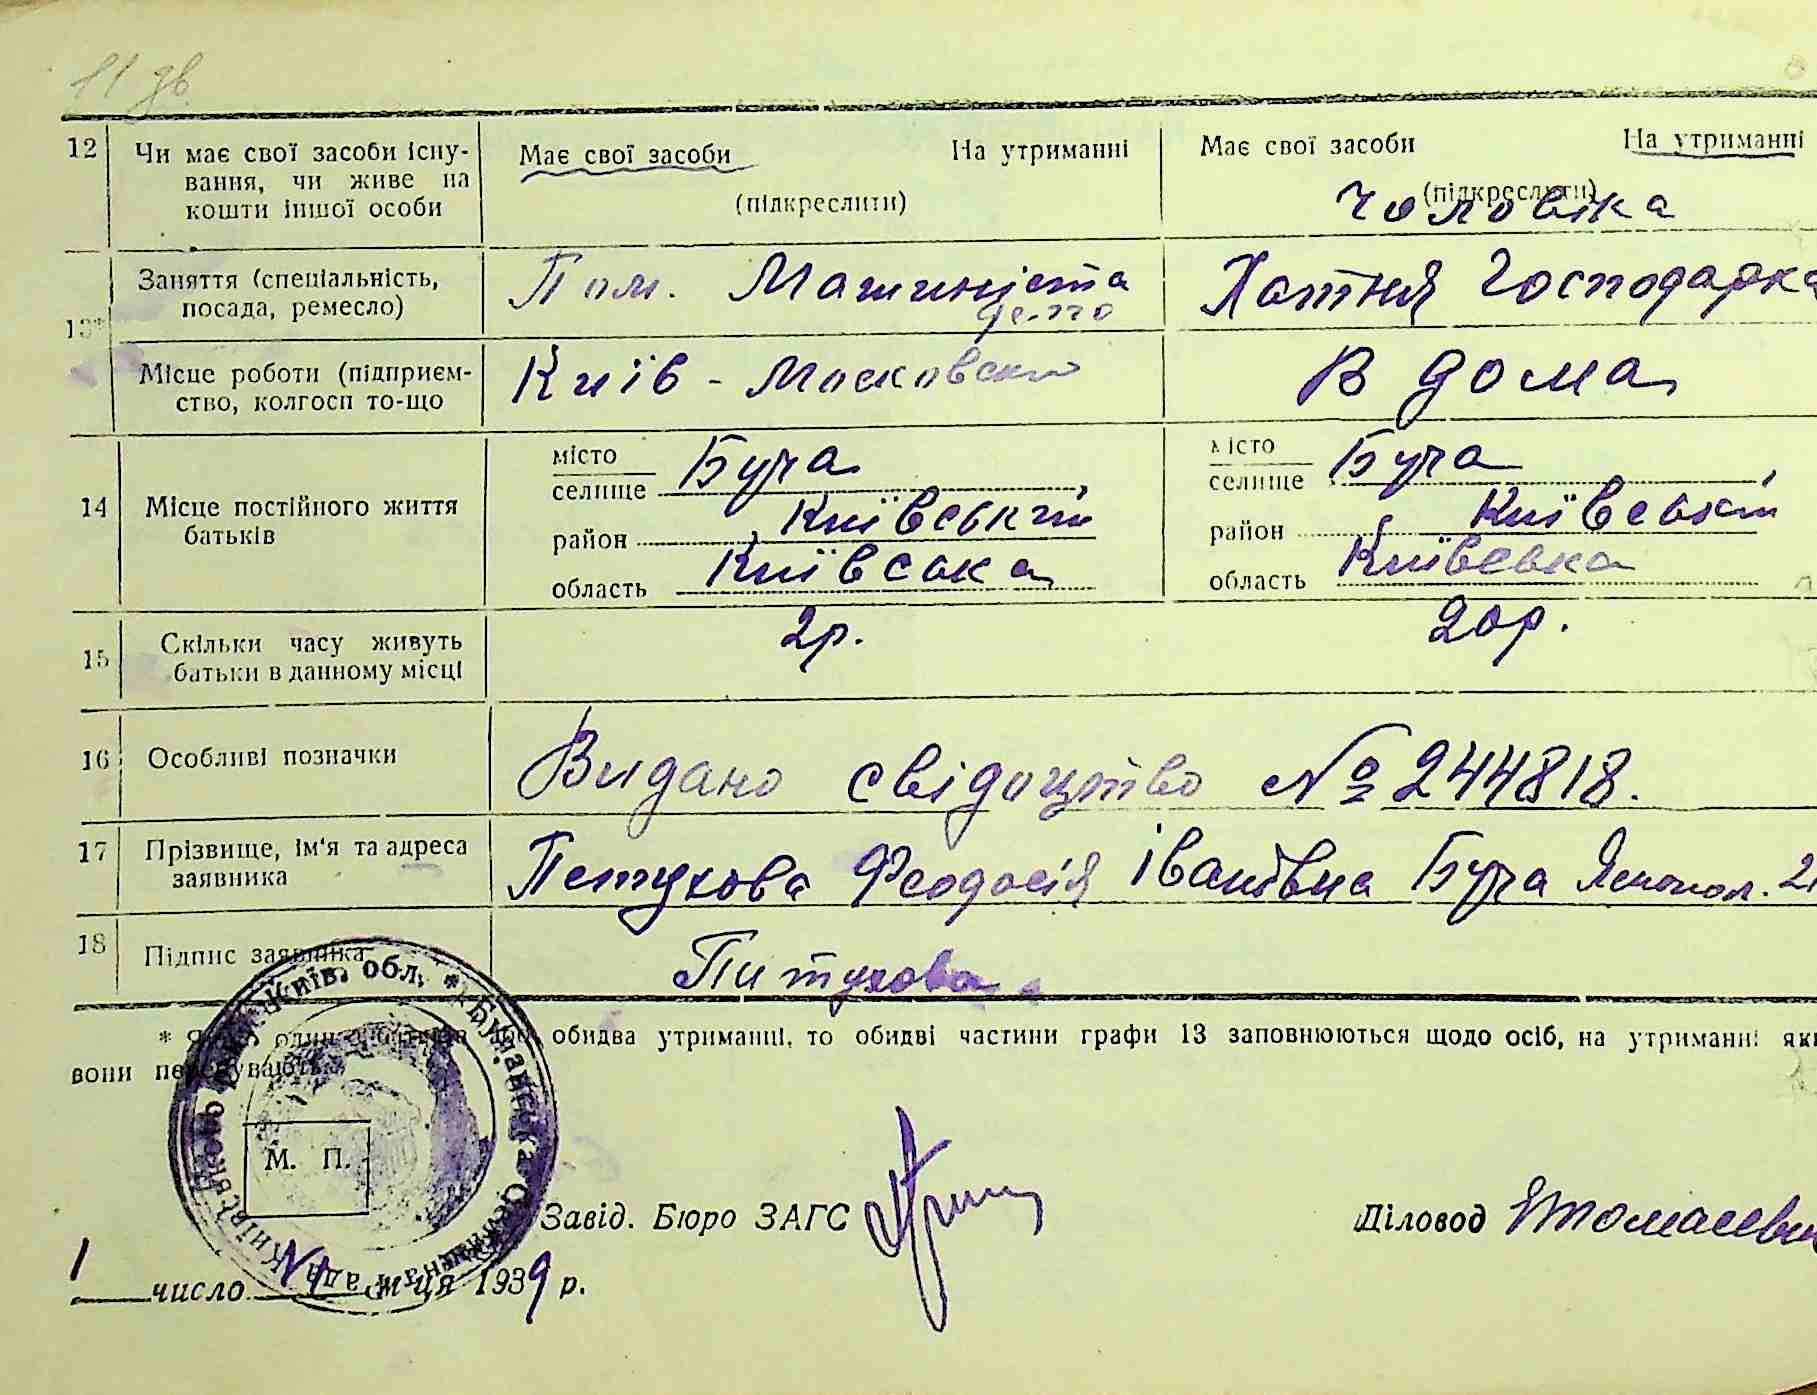 11 дв
12 Чи має свої засоби існу- Має свої засоби На утриманні Має свої засоби На утриманні
вання, чи живе на (підкреслити) (підкреслити)
кошти іншої особи чоловіка
13* Заняття (спеціальність, Пом. Машиніста Хатня Господарка
посада, ремесло) депо
Місце роботи (підприєм- Київ - Московски В дома
ство, колгосп то-що
14 Місце постійного життя батьків
місто Буча місто Буча
селище селище
район Київський район Київський
область Київська область Київська
15 Скільки часу живуть 2р. 20р.
батьки в данному місці
16 Особливі позначки Видано свідоцтво № 244818.
17 Прізвище, ім'я та адреса Петухова Феодосія Іванівна Буча Яснопол. 21
заявника
18 Підпис заявника Питухова
* один обидва утриманні, то обидві частини графи 13 заповнюються щодо осіб, на утриманні яки
вони перебувають.
Київ. обл. * Бучанська Селищна Рада
М. П.
Завід. Бюро ЗАГС Діловод
1 число VI м-ця 1939 р.